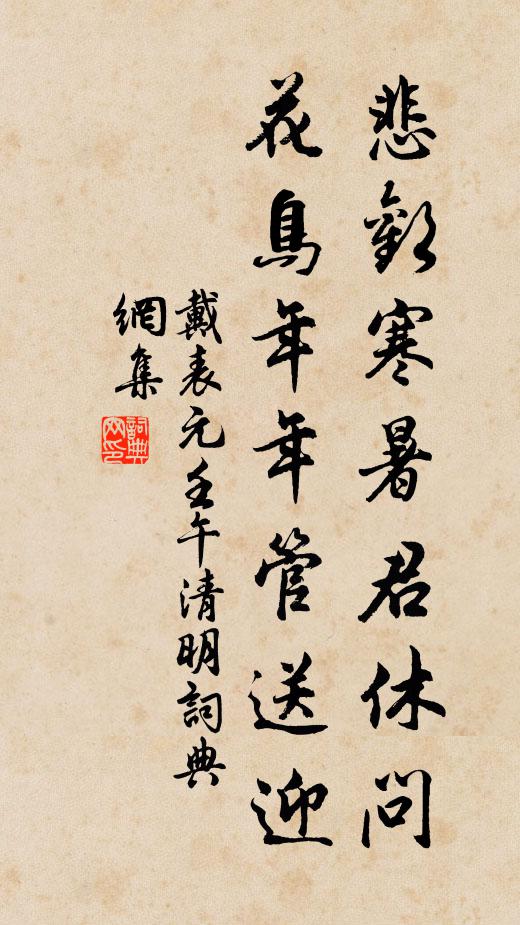 悲歡寒暑君休問
花鳥年年管送迎
戴表元壬午清明詞典
網集
詞典
网印